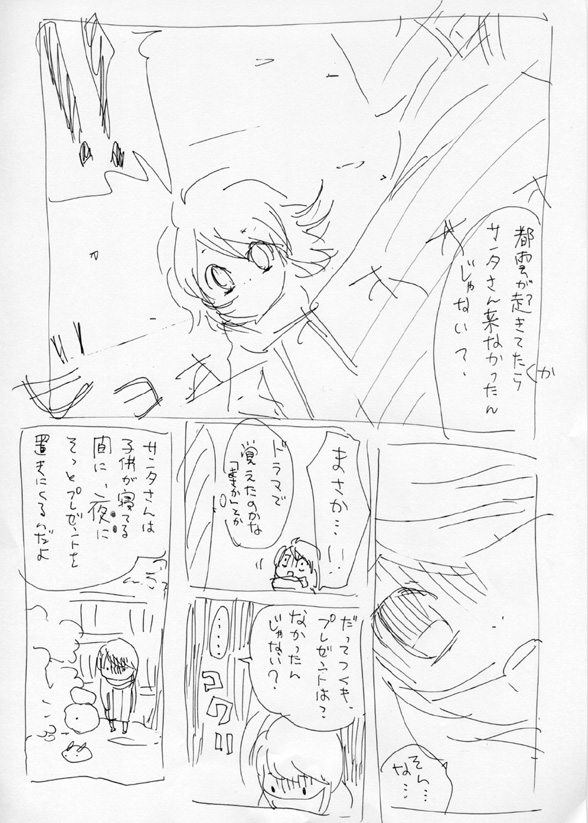 都雲が起きてたら
サンタさん来なかったん
じゃない?
まさか…!!
ドラマで
覚えたのかな
「まさか」とか
だってつくも、
プレゼントは?
なかったん
じゃない?
……
コクリ
そん…
な…
サンタさんは
子供が寝てる
間に、夜に
そっとプレゼントを
置きにくるんだよ